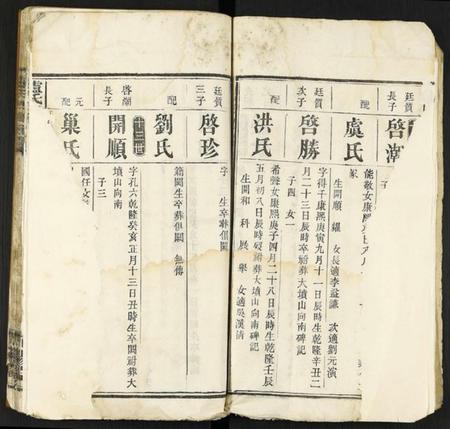 廷賀長子
啓滿
能敬女康熙
配
虞氏
生開順 女長適李益謙 次適劉元演
廷賀次子
啓勝
字得千康熙庚寅九月十一日辰時生乾隆辛丑二
月二十三日辰時卒祔葬大墳山向南碑記
子四 女一
配
洪氏
希聲女康熙庚子四月二十八日辰時生乾隆壬辰
五月初八日辰時歿祔葬大墳山向南碑記
生開和 科 展 舉 女適吳漢清
廷賀三子
啓珍
字 生卒葬俱闕
配
劉氏
籍闕生卒葬俱闕 無傳
十三世
啓滿長子
開順
字孔六乾隆癸亥正月十三日丑時生卒闕祔葬大
墳山向南
子三
元配
巢氏
國任女